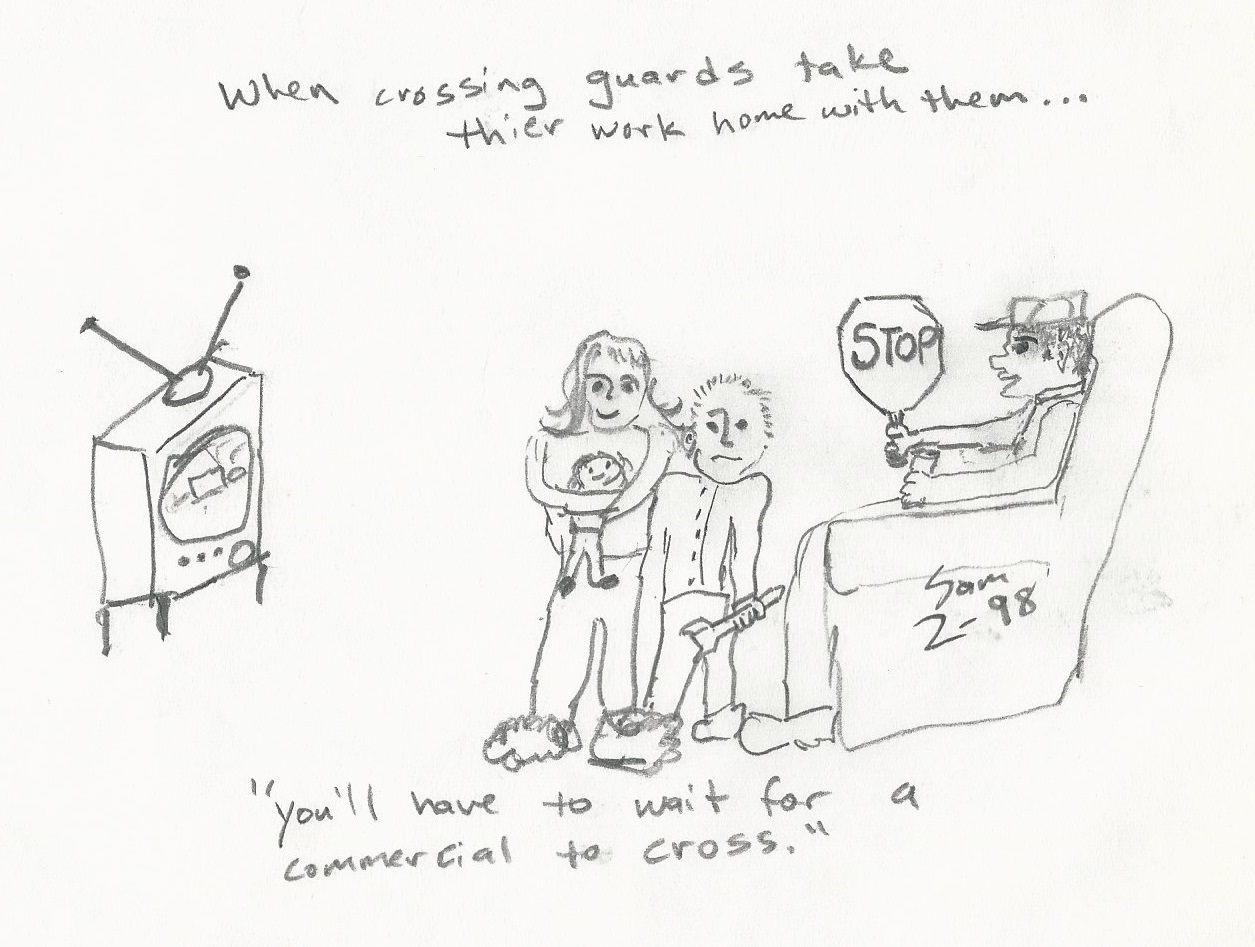 When crossing guards take
thier work home with them...
STOP
Sam
2-98
"you'll have to wait for a
commercial to cross."